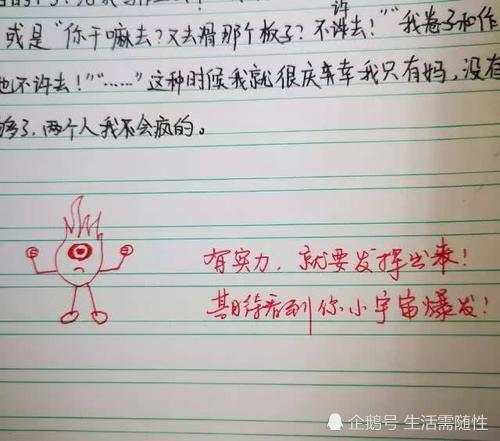 或是"你干嘛去?又去滑那个板子?不许去!""我卷子和作
也不许去!""……"这种时候我就很庆幸我只有妈,没有
够了.两个人我不会疯的。
有实力,就要发挥出来!
期待看到你小宇宙爆发!
企鹅号 生活需随性